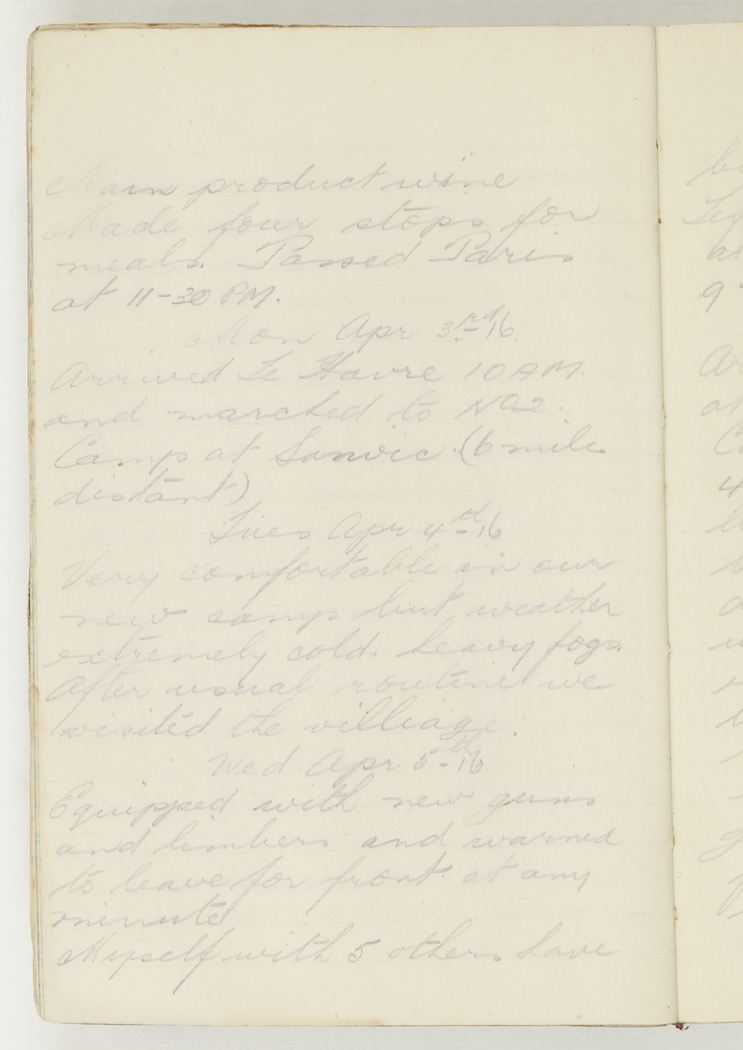 Main product wine
Made four stops for
meals. Passed Paris
at 11-30 PM.
Mon Apr 3rd-16.
Arrived Le Havre 10 AM
and marched to No 2.
Camp at Sanvic (6 miles
distant)
Tues Apr 4th-16
Very comfortable in our
new camp but weather
extremely cold. heavy fogs.
After usual routine we
visited the villiage.
Wed Apr 5th-16
Equipped with new guns
and limbers and warned
to leave for front at any
minute
Myself with 5 others have